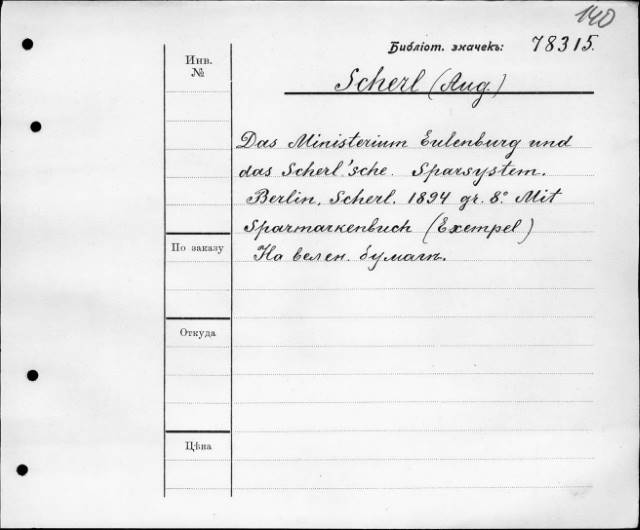 140
Библіот. значекъ: 78315.
Инв.
№
Scherl (Aug.)
Das Ministerium Eulenburg und
das Scherl'sche Sparsystem.
Berlin, Scherl. 1894 gr. 8º Mit
Sparmarkenbuch (Exempel)
На велен. бумагѣ.
По заказу
Откуда
Цѣна